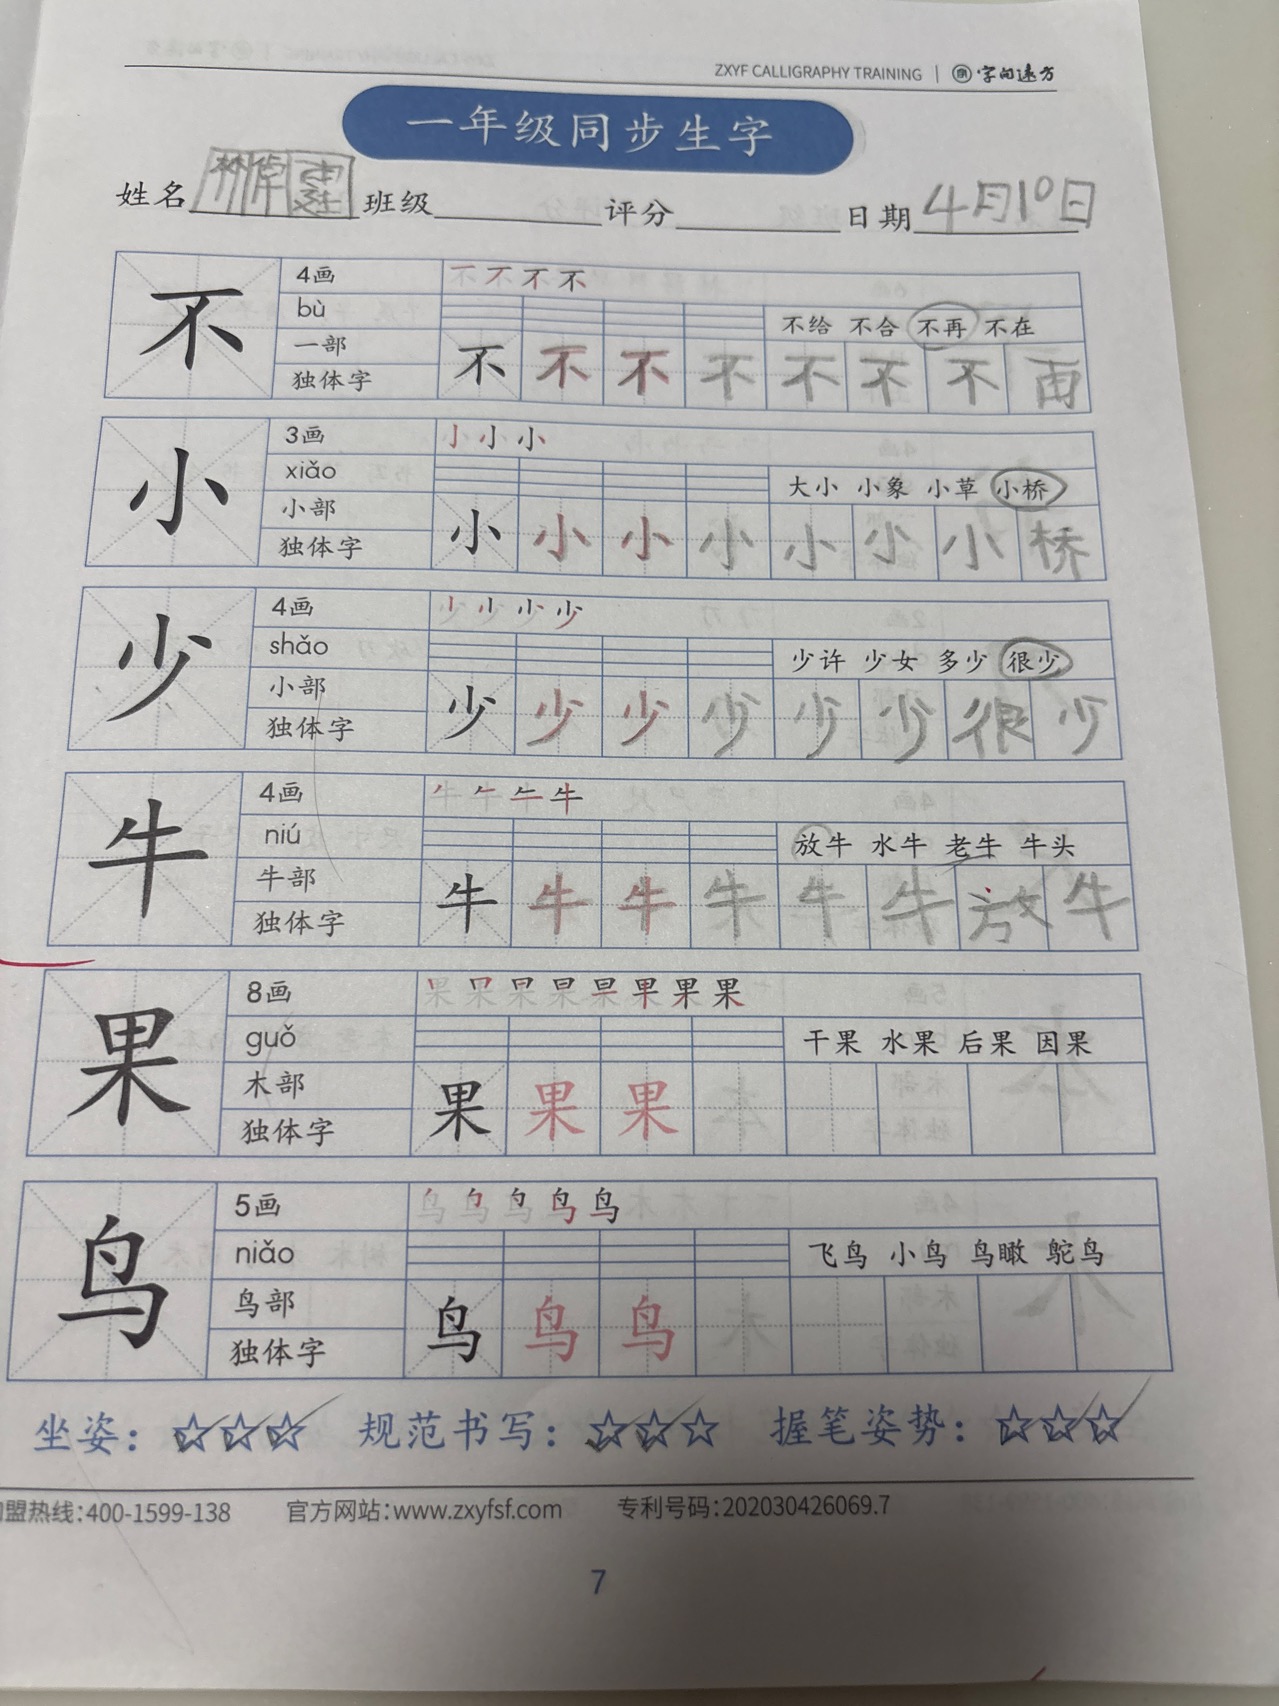 ZXYF CALLIGRAPHY TRAINING | 字向远方
一年级同步生字
姓名 林 班级 评分 日期 4月10日
4画 不 不 不 不
bù
不给 不合 不再 不在
一部
不 不 不 不 不 不 不 再
独体字
不
3画 小 小 小
xiǎo
大小 小象 小草 小桥
小部
小 小 小 小 小 小 小 桥
独体字
小
4画 少 少 少 少
shǎo
少许 少女 多少 很少
小部
少 少 少 少 少 少 很 少
独体字
少
4画 牛 牛 牛 牛
niú
放牛 水牛 老牛 牛头
牛部
牛 牛 牛 牛 牛 牛 放 牛
独体字
牛
8画 果 果 果 果 果 果 果 果
guǒ
干果 水果 后果 因果
木部
果 果 果
独体字
果
5画 鸟 鸟 鸟 鸟 鸟
niǎo
飞鸟 小鸟 鸟瞰 鸵鸟
鸟部
鸟 鸟 鸟
独体字
鸟
坐姿：☆☆☆ 规范书写：☆☆☆ 握笔姿势：☆☆☆
盟热线：400-1599-138 官方网站：www.zxyfsf.com 专利号码：202030426069.7
7